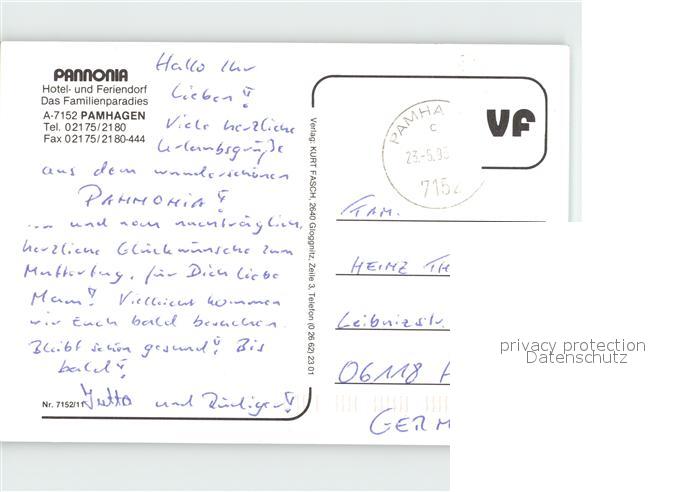 PANNONIA
Hotel- und Feriendorf
Das Familienparadies
A-7152 PAMHAGEN
Tel. 02175/2180
Fax 02175/2180-444
Hallo Ihr
Lieben!
Viele herzliche
Urlaubsgrüße
aus dem wunderschönen
PANNONIA!
... und noch nachträglich
herzliche Glückwünsche zum
Muttertag, für Dich liebe
Mam! Vielleicht kommen
wir Euch bald besuchen.
Bleibt schön gesund! Bis
bald!
Jutta und Rüdiger!
Nr. 7152/11
Verlag: KURT FASCH, 2640 Gloggnitz, Zeile 3, Telefon (0 26 62) 23 01
PAMHA
c
23.-5.95
7152
VF
FAM.
HEINZ TH
Leibnizstr.
06118 H
GERM
privacy protection
Datenschutz